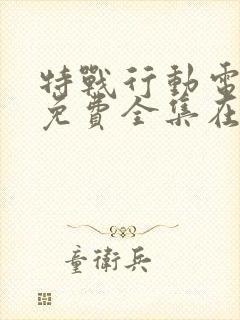 特戰行動電
免費全集在
童衛兵